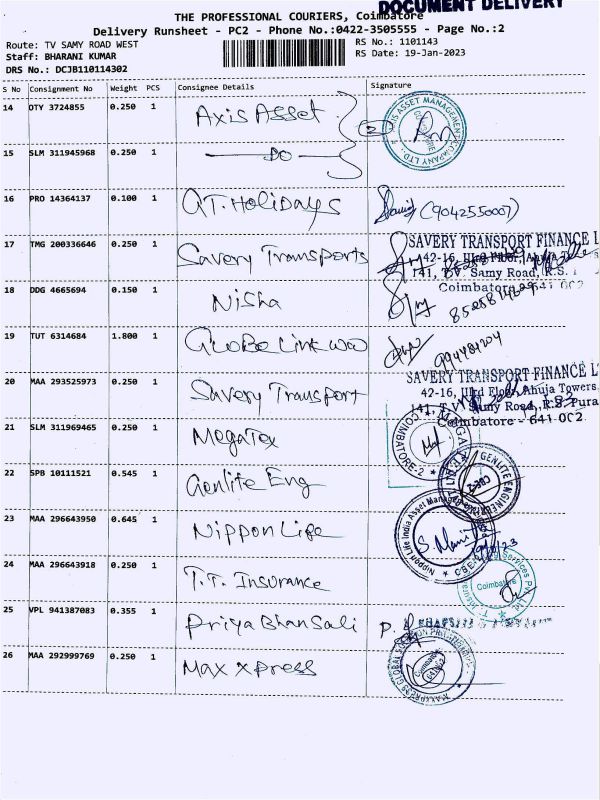 DOCUMENT DELIVERY
THE PROFESSIONAL COURIERS, Coimbatore
Delivery Runsheet - PC2 - Phone No.:0422-3505555 - Page No.:2
Route: TV SAMY ROAD WEST
RS No.: 1101143
Staff: BHARANI KUMAR
RS Date: 19-Jan-2023
DRS No.: DCJB110114302
S No Consignment No Weight PCS Consignee Details Signature
14 OTY 3724855 0.250 1 Axis Asset
AXIS ASSET MANAGEMENT COMPANY LTD.
15 SLM 311945968 0.250 1 DO
16 PRO 14364137 0.100 1 GT. Holidays (9042550007)
17 TMG 200336646 0.250 1 Savery Transports
SAVERY TRANSPORT FINANCE
42-16, IIIrd Floor, Ahuja
141, T.V. Samy Road, R.S.
Coimbatore - 641 002
18 DDG 4665694 0.150 1 Nisha
19 TUT 6314684 1.800 1 Globe Link
20 MAA 293525973 0.250 1 Savery Transport
SAVERY TRANSPORT FINANCE
42-16, IIIrd Floor, Ahuja Towers,
141, T.V. Samy Road, R.S. Pura
Coimbatore - 641 002.
21 SLM 311969465 0.250 1 Megatex
COIMBATORE-2
22 SPB 10111521 0.545 1 Genlite Eng
GENLITE ENGINEERING
CBE-2
23 MAA 296643950 0.645 1 Nippon Life
Nippon Life India Asset
24 MAA 296643918 0.250 1 T.T. Insurance
Services Pvt. Ltd.
Coimbatore
25 VPL 941387083 0.355 1 Priya Bhansali
26 MAA 292999769 0.250 1 Max xpress
MAXPRESS GLOBAL
Coimbatore